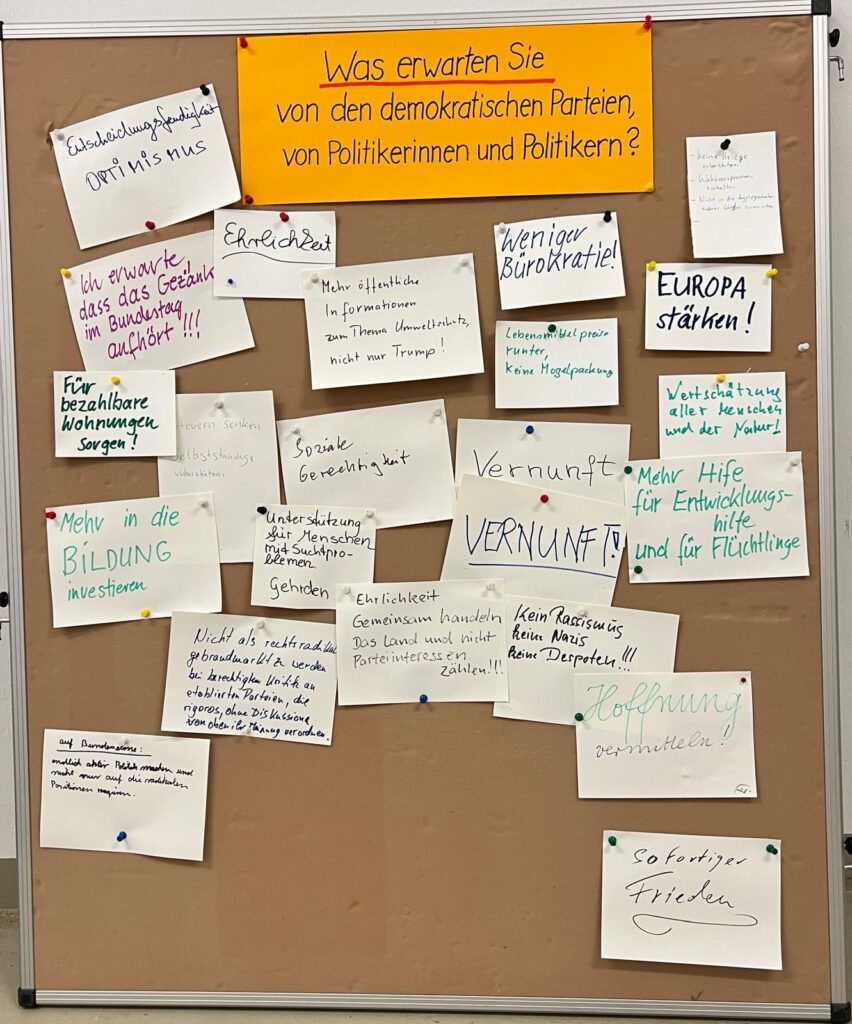 Was erwarten Sie
von den demokratischen Parteien,
von Politikerinnen und Politikern?
Entscheidungsfreudigkeit
OPTIMISMUS
Ehrlichkeit
Ich erwarte,
dass das Gezänk
im Bundestag
aufhört!!!
Mehr öffentliche
Informationen
zum Thema Umweltschutz,
nicht nur Trump!
Weniger
Bürokratie!
- keine Kriege
EUROPA
stärken!
Lebensmittelpreise
runter,
keine Mogelpackung
Für
bezahlbare
Wohnungen
sorgen!
steuern senken
Selbstständige
unterstützen
Soziale
Gerechtigkeit
Wertschätzung
aller Menschen
und der Natur!
Vernunft
VERNUNFT!
Mehr Hife
für Entwicklungs-
hilfe
und für Flüchtlinge
Mehr in die
BILDUNG
investieren
Unterstützung
für Menschen
mit Suchtpro-
blemen.
Gehrden
Ehrlichkeit
Gemeinsam handeln
Das Land und nicht
Parteiinteressen
zählen!!!
Kein Rassismus
keine Nazis
keine Despoten!!!
Nicht als rechtsradikal
gebrandmarkt zu werden
bei berechtigter Kritik an
etablierten Parteien, die
rigoros, ohne Diskussione,
von oben ihr Meinung verordnen.
Hoffnung
vermitteln!
auf Bundesebene:
endlich aktiv Politik machen und
nicht nur auf die radikalen
Positionen reagieren.
Sofortiger
Frieden